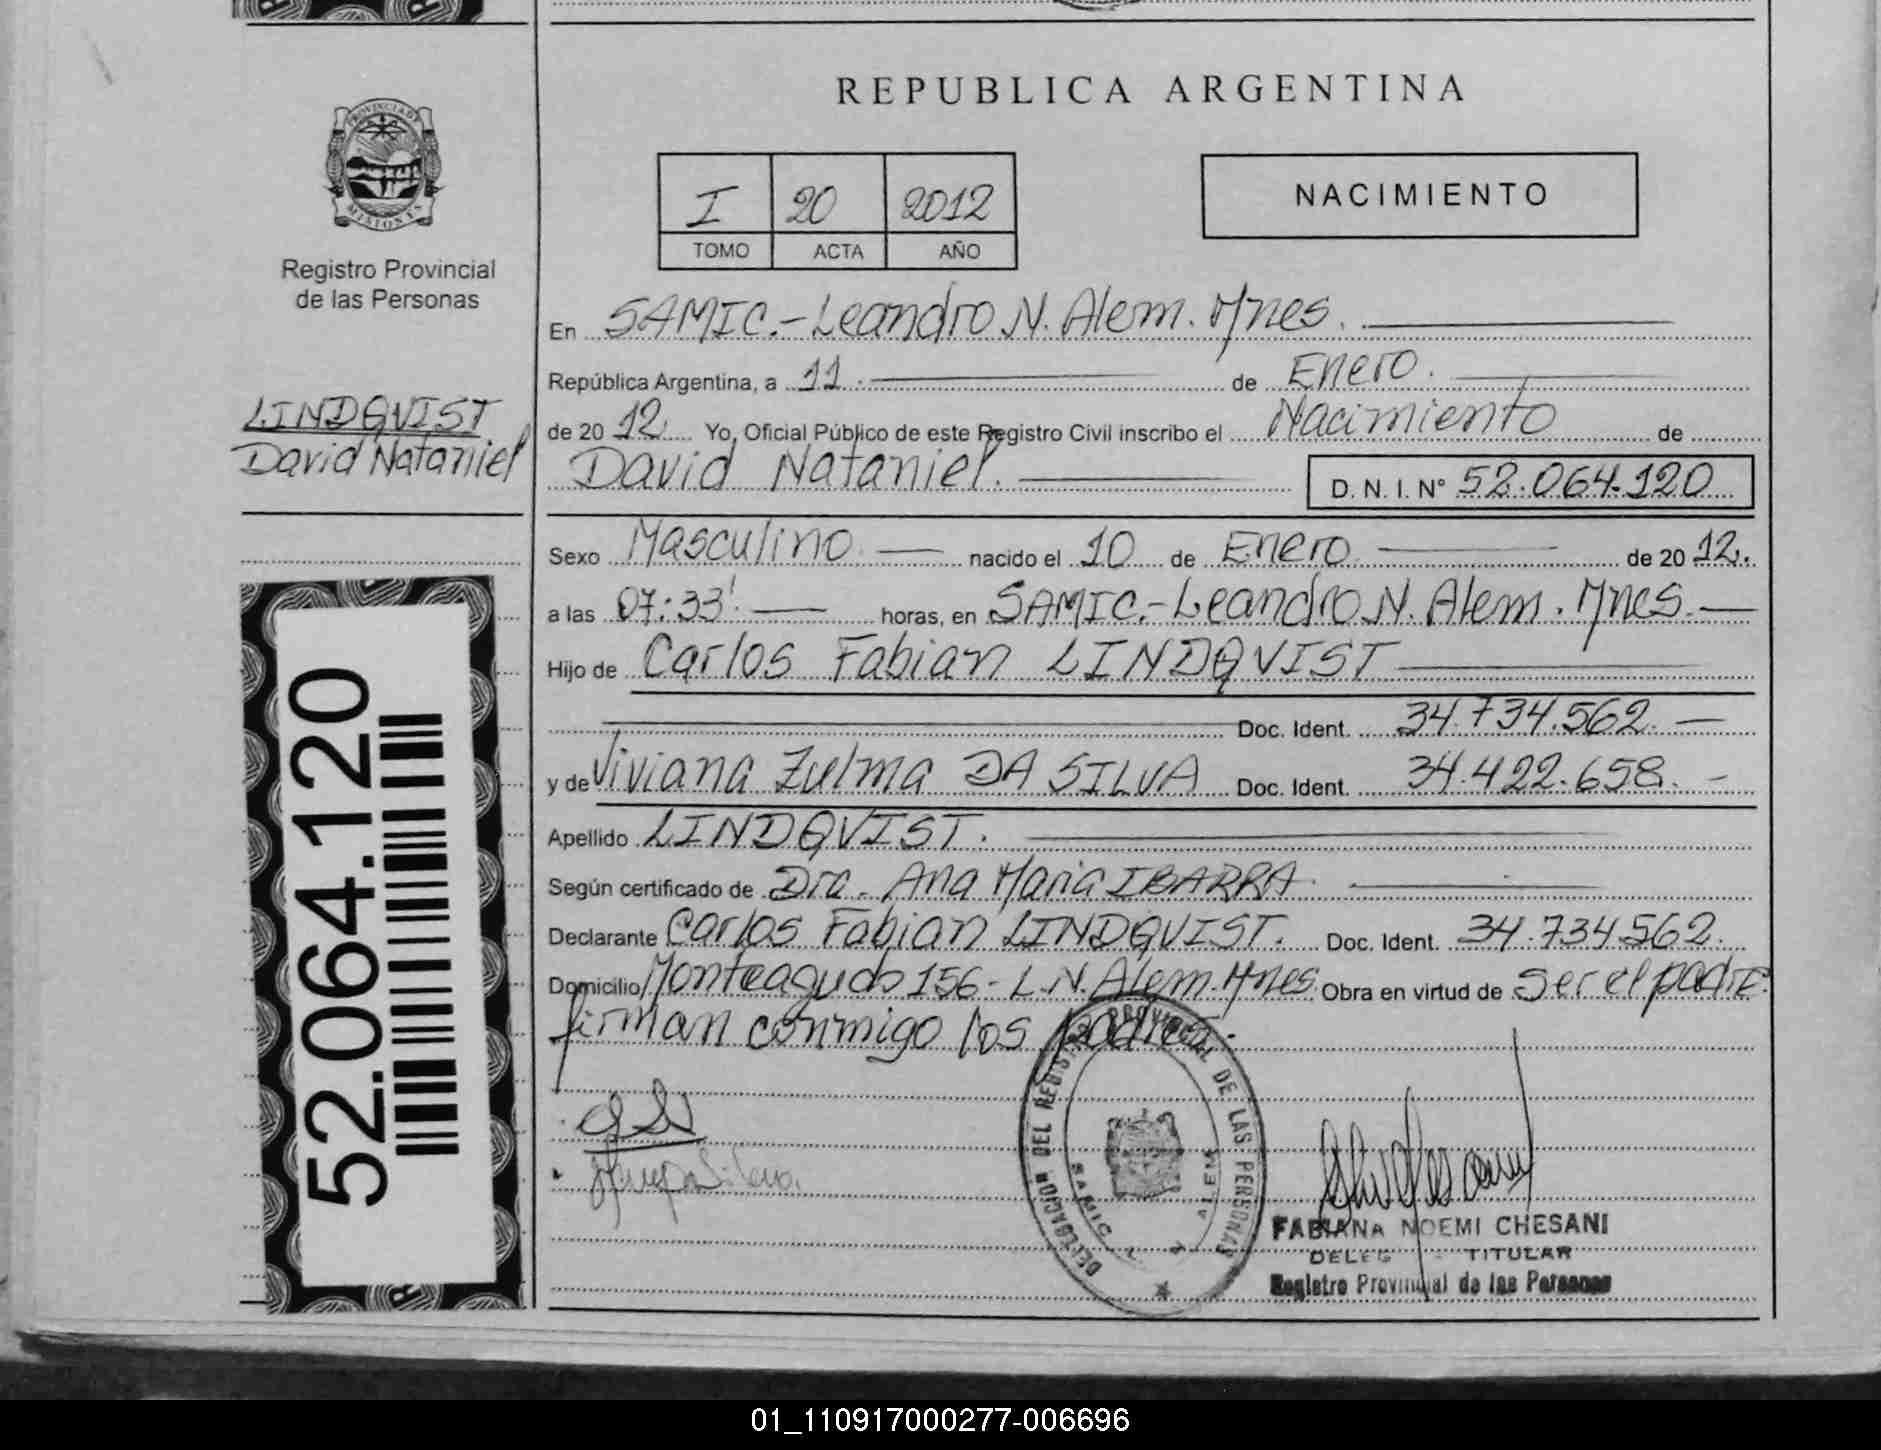 REPUBLICA ARGENTINA
PROVINCIA DE
MISIONES
Registro Provincial
de las Personas
I 20 2012
TOMO ACTA AÑO
NACIMIENTO
En SAMIC.-Leandro N. Alem. Mnes.
República Argentina, a 11. de Enero.
de 20 12 Yo, Oficial Público de este Registro Civil inscribo el Nacimiento de
David Nataniel. D. N. I. N° 52.064.120
LINDQVIST
David Nataniel
Sexo Masculino nacido el 10 de Enero de 20 12.
a las 07:33' horas, en SAMIC.-Leandro N. Alem. Mnes.
Hijo de Carlos Fabian LINDQVIST
Doc. Ident. 34.734.562.
y de Viviana Zulma DA SILVA Doc. Ident. 34.422.658.
Apellido LINDQVIST.
Según certificado de Dra. Ana Maria IBARRA.
Declarante Carlos Fabian LINDQVIST. Doc. Ident. 34.734.562.
Domicilio Monteagudo 156- L.N. Alem. Mnes. Obra en virtud de Ser el padre.
firman conmigo los padres.
52.064.120
DELEGACION DEL REGISTRO PROVINCIAL DE LAS PERSONAS
SAMIC L. N. ALEM
FABIANA NOEMI CHESANI
DELEG TITULAR
Registro Provincial de las Personas
01_110917000277-006696